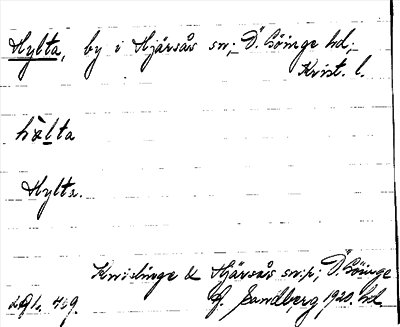 Hylta, by i Hjärsås sn; Ö. Göinge hd;
Krist. l.
hælta
Hylta.
Knislinge & Hjärsås sn:r; Ö. Göinge
hd.
G. Sandberg, 1920.